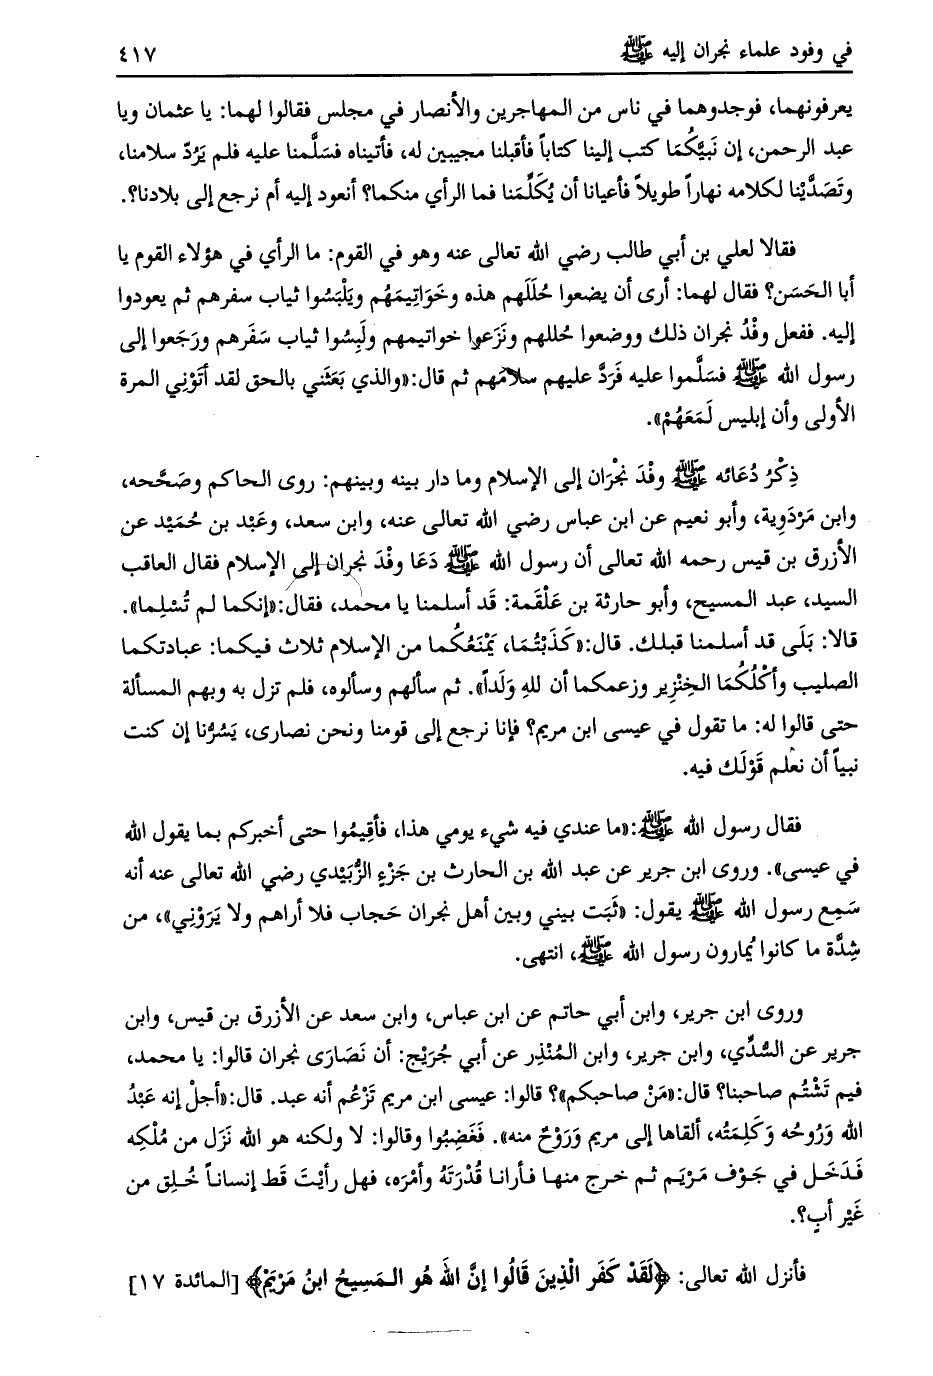 في وفود علماء نجران إليه ﷺ ٤١٧
يعرفونهما، فوجدوهما في ناس من المهاجرين والأنصار في مجلس فقالوا لهما: يا عثمان ويا
عبد الرحمن، إن نَبيَّكُمَا كتب إلينا كتاباً فأقبلنا مجيبين له، فأتيناه فسَلَّمنا عليه فلم يَرُدّ سلامنا،
وتَصَدَّيْنا لكلامه نهاراً طويلاً فأعيانا أن يُكَلِّمَنا فما الرأي منكما؟ أنعود إليه أم نرجع إلى بلادنا؟.
فقالا لعلي بن أبي طالب رضي الله تعالى عنه وهو في القوم: ما الرأي في هؤلاء القوم يا
أبا الحَسَن؟ فقال لهما: أرى أن يضعوا حُلَلَهم هذه وخَوَاتِيمَهُم ويَلْبَسُوا ثياب سفرهم ثم يعودوا
إليه. ففعل وفْدُ نجران ذلك ووضعوا حُللهم ونَزَعوا خواتيمهم ولَبِسُوا ثياب سَفَرهم ورَجَعوا إلى
رسول الله ﷺ فسَلَّموا عليه فَرَدَّ عليهم سلامَهم ثم قال:«والذي بَعَثَني بالحق لقد أتَوْنِي المرة
الأولى وأن إبليس لَمَعَهُمْ».
ذِكْرُ دُعَائه ﷺ وفْدَ نَجْرَان إلى الإسلام وما دار بينه وبينهم: روى الحاكم وصَحَّحه،
وابن مَرْدَوِية، وأبو نعيم عن ابن عباس رضي الله تعالى عنه، وابن سعد، وعَبْد بن حُمَيْد عن
الأزرق بن قيس رحمه الله تعالى أن رسول الله ﷺ دَعَا وفْدَ نجران إلى الإسلام فقال العاقب
السيد، عبد المسيح، وأبو حارثة بن عَلْقَمة: قَد أسلمنا يا محمد، فقال:«إنكما لم تُسْلِما».
قالا: بَلَى قد أسلمنا قبلك. قال:«كَذَبْتُمَا، يَمْنَعُكُما من الإسلام ثلاث فيكما: عبادتكما
الصليب وأكْلُكُمَا الخِنْزِير وزعمكما أن للهِ وَلَداً». ثم سألهم وسألوه، فلم تزل به وبهم المسألة
حتى قالوا له: ما تقول في عيسى ابن مريم؟ فإنا نرجع إلى قومنا ونحن نصارى، يَسُرُّنا إن كنت
نبياً أن نعْلم قَوْلَك فيه.
فقال رسول الله ﷺ:«ما عندي فيه شيء يومي هذا، فأقِيمُوا حتى أخبركم بما يقول الله
في عيسى». وروى ابن جرير عن عبد الله بن الحارث بن جَزْءٍ الزُّبَيْدي رضي الله تعالى عنه أنه
سَمِع رسول الله ﷺ يقول: «ثَبَت بيني وبين أهل نجران حَجاب فلا أراهم ولا يَرَوْنِي»، من
شِدَّة ما كانوا يُمارون رسول الله ﷺ، انتهى.
وروى ابن جرير، وابن أبي حاتم عن ابن عباس، وابن سعد عن الأزرق بن قيس، وابن
جرير عن السُّدِّي، وابن جرير، وابن المُنْذِر عن أبي جُرَيْج: أن نَصَارَى نجران قالوا: يا محمد،
فيم تَشْتُم صاحبنا؟ قال:«مَنْ صاحبكم»؟ قالوا: عيسى ابن مريم تَزْعُم أنه عبد. قال:«أجلْ إنه عَبْدُ
الله وَرُوحُه وَكَلِمَتُه، ألقاها إلى مريم وَرَوْحٌ منه». فَغَضِبُوا وقالوا: لا ولكنه هو الله نَزَل من مُلْكِه
فَدَخَل في جَوْف مَرْيَم ثم خرج منها فأرانا قُدْرَتَهُ وأمْرَه، فهل رأيْتَ قَط إنساناً خُلِق من
غَيْر أبٍ؟.
فأنزل الله تعالى: ﴿لَقَدْ كَفَر الْذِينَ قَالُوا إنَّ اللَّهَ هُو المَسِيحُ ابنُ مَرْيَمْ﴾ [المائدة ١٧]